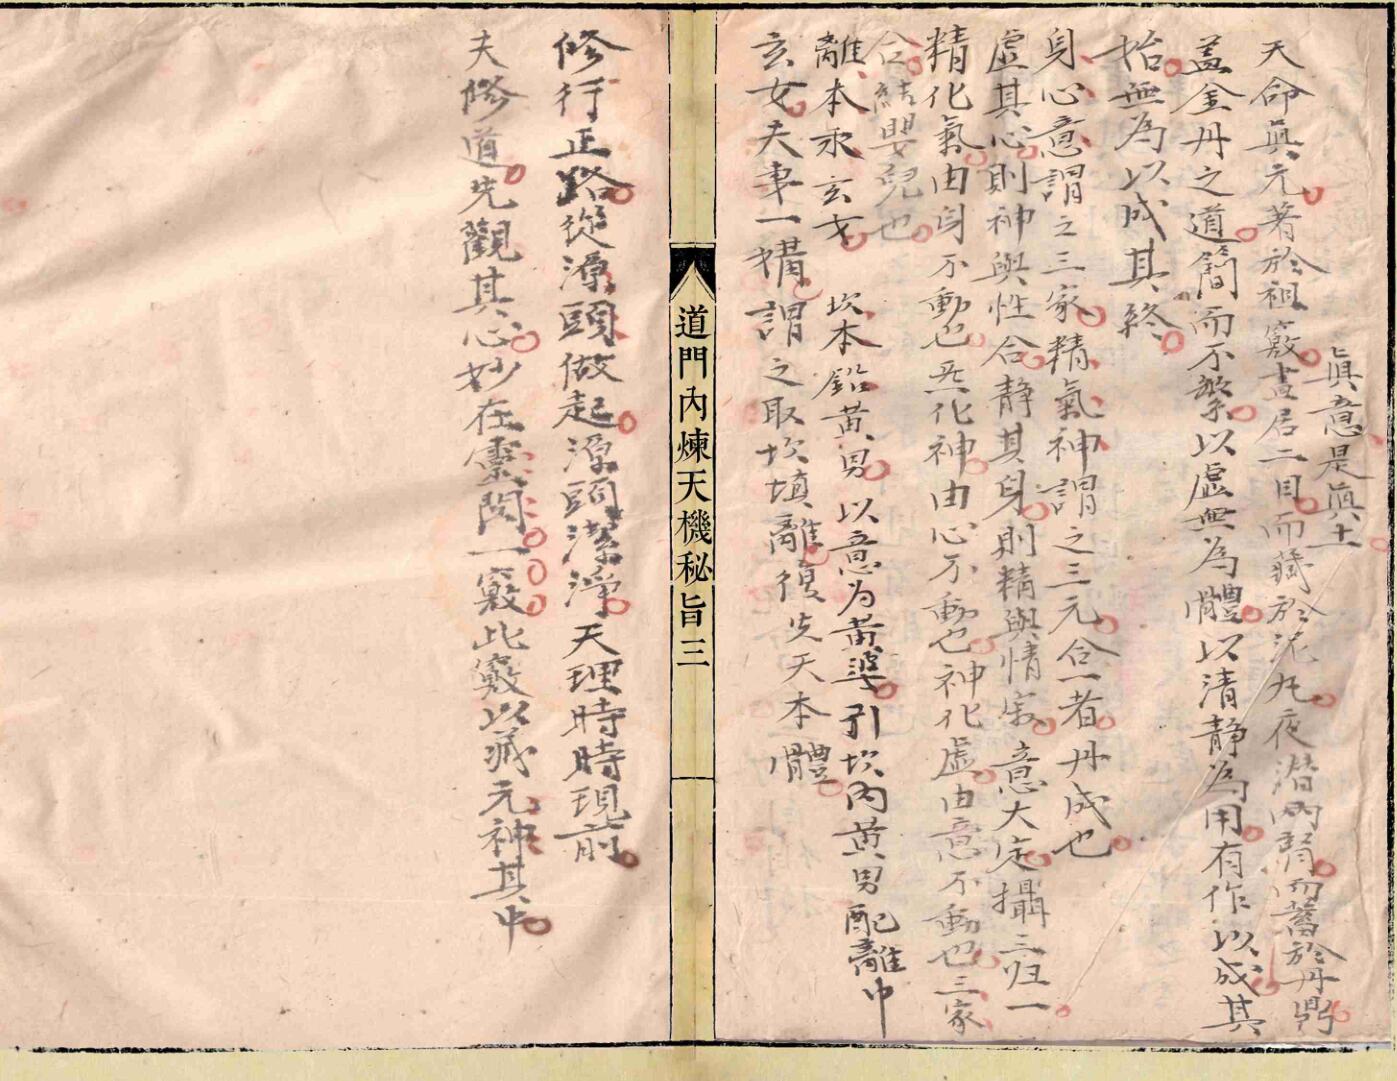 眞意是真土
天命眞元著於祖竅晝居二目而藏於泥丸夜潜兩腎而蓄於丹鼎
盖金丹之道簡而不繁以虛無為體以清静為用有作以成其
始無為以成其終
身心意謂之三家精氣神謂之三元合一者丹成也
虛其心則神與性合静其身則精與情寂意大定攝三归一
精化氣由身不動也炁化神由心不動也神化虛由意不動也三家
合結嬰兒也
離本汞玄女 坎本鉛黃男以意为黃婆引坎内黃男配離中
玄女夫妻一媾謂之取坎填離復先天本體
道門内煉天機秘旨三
修行正路從源頭做起源頭潔淨天理時時現前
夫修道先觀其心妙在靈関一竅此竅以藏元神其中